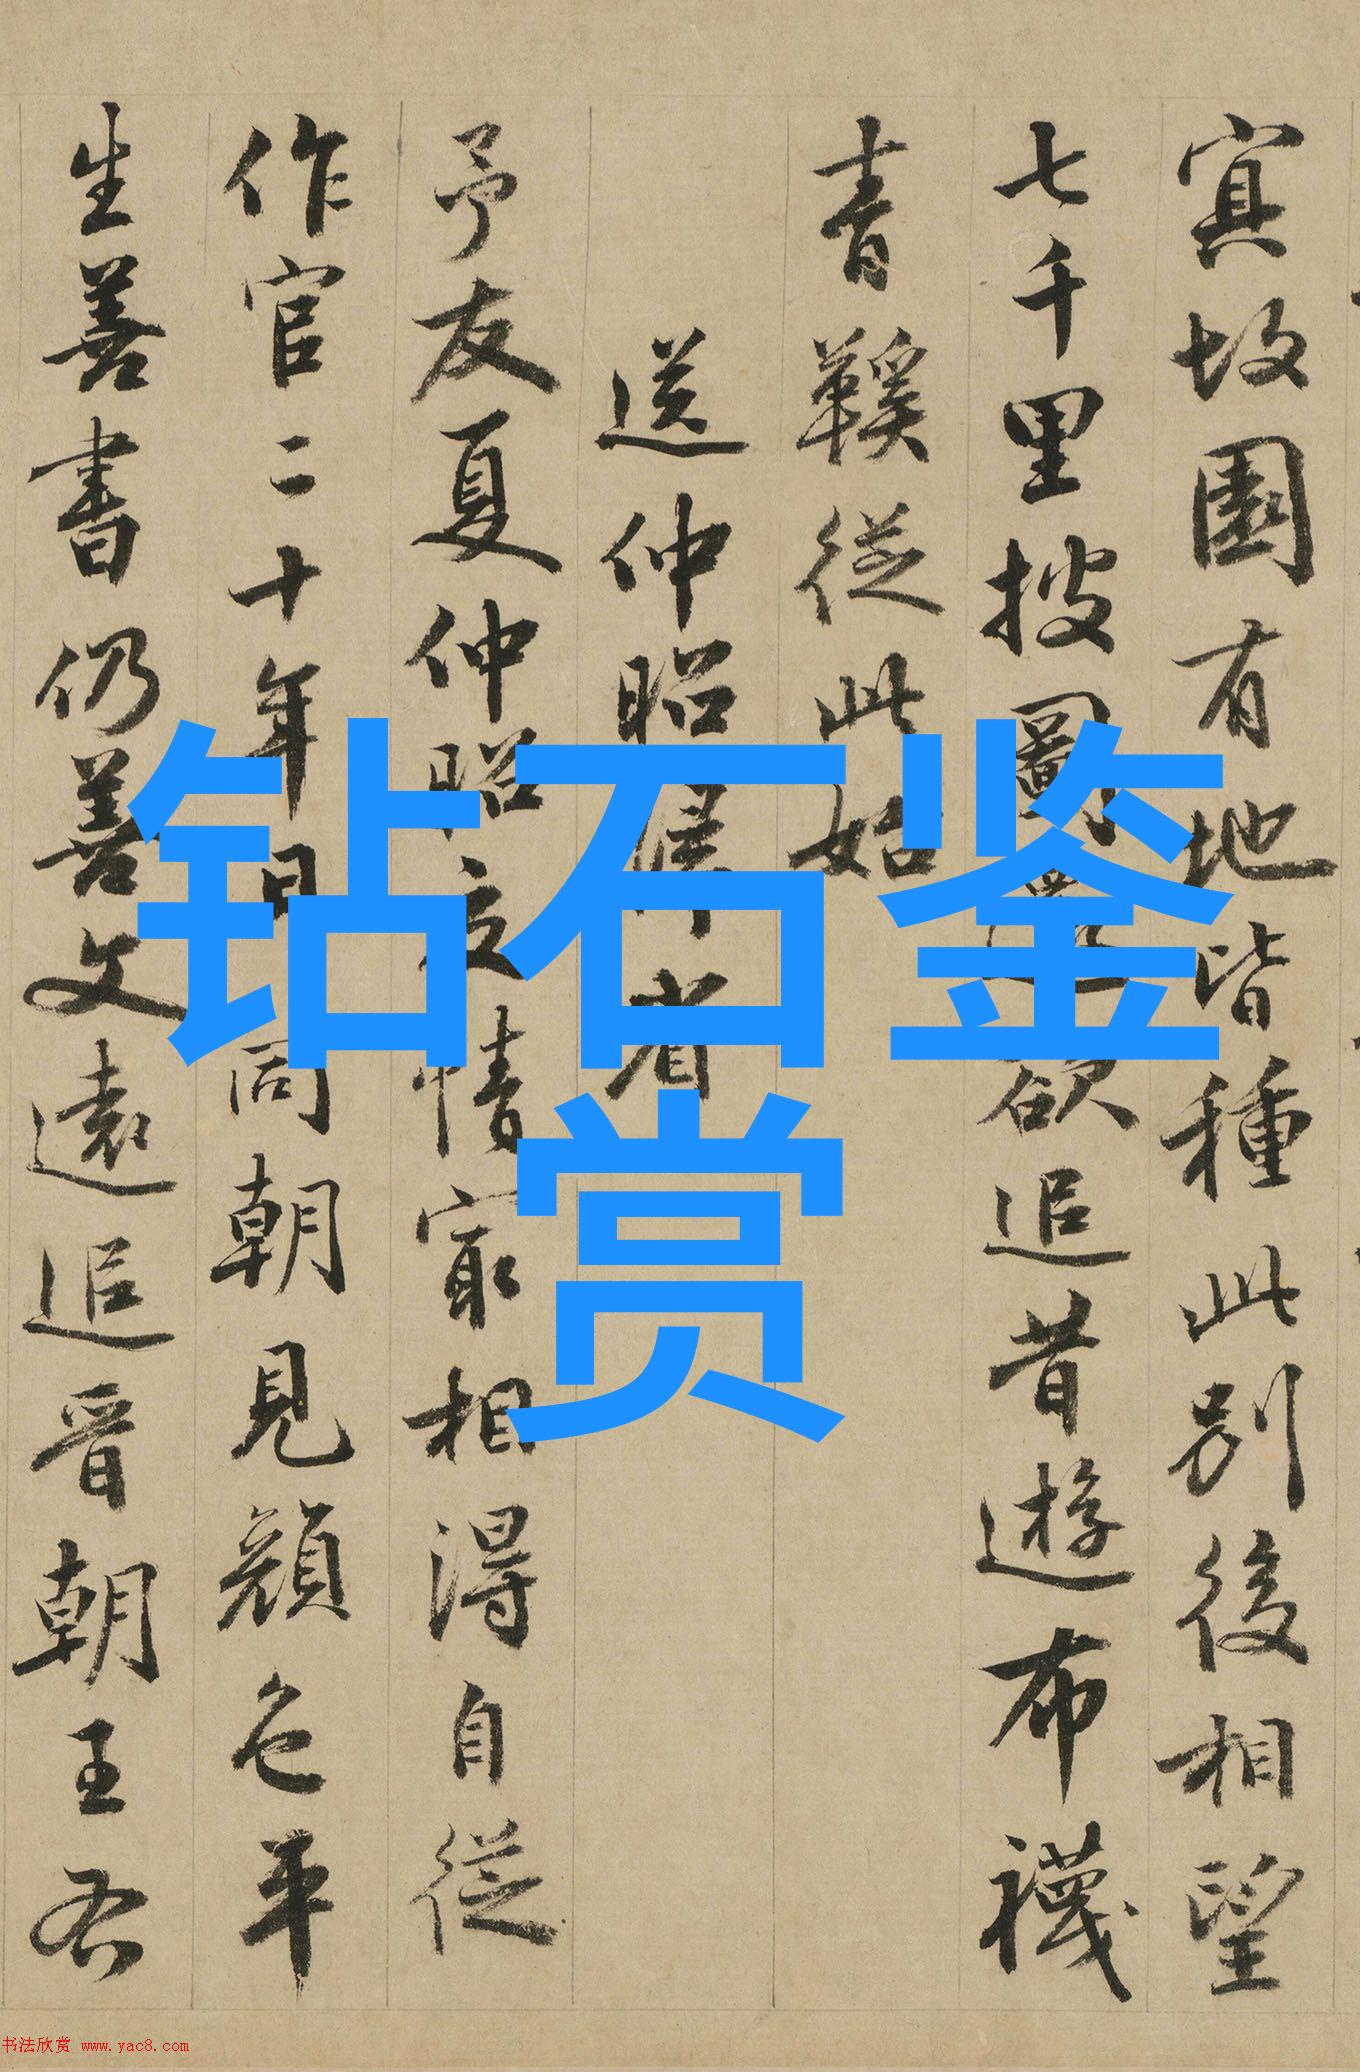 寘故園有地皆種此别後相望
七千里披圖欲追昔遊布襪
青鞵從此始
送仲昭省
予友夏仲昭之情寂相得自從
作官二十年日同朝見顔色平
生善書仍善文遠追晉朝王右
钻石鉴
赏
书法欣赏 www.yac8.com